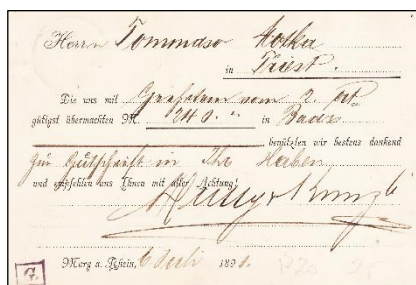 Herrn Tommaso Molka
in Triest.
Die uns mit Geehrtem vom 2. 
gütigst übermachten M. 240.- in
benützten wir bestens dankend
zu Gutschrift in Ihr Haben
und empfehlen uns Ihnen mit aller Achtung!
Merg a. Rhein, 6 Juli 189
G.